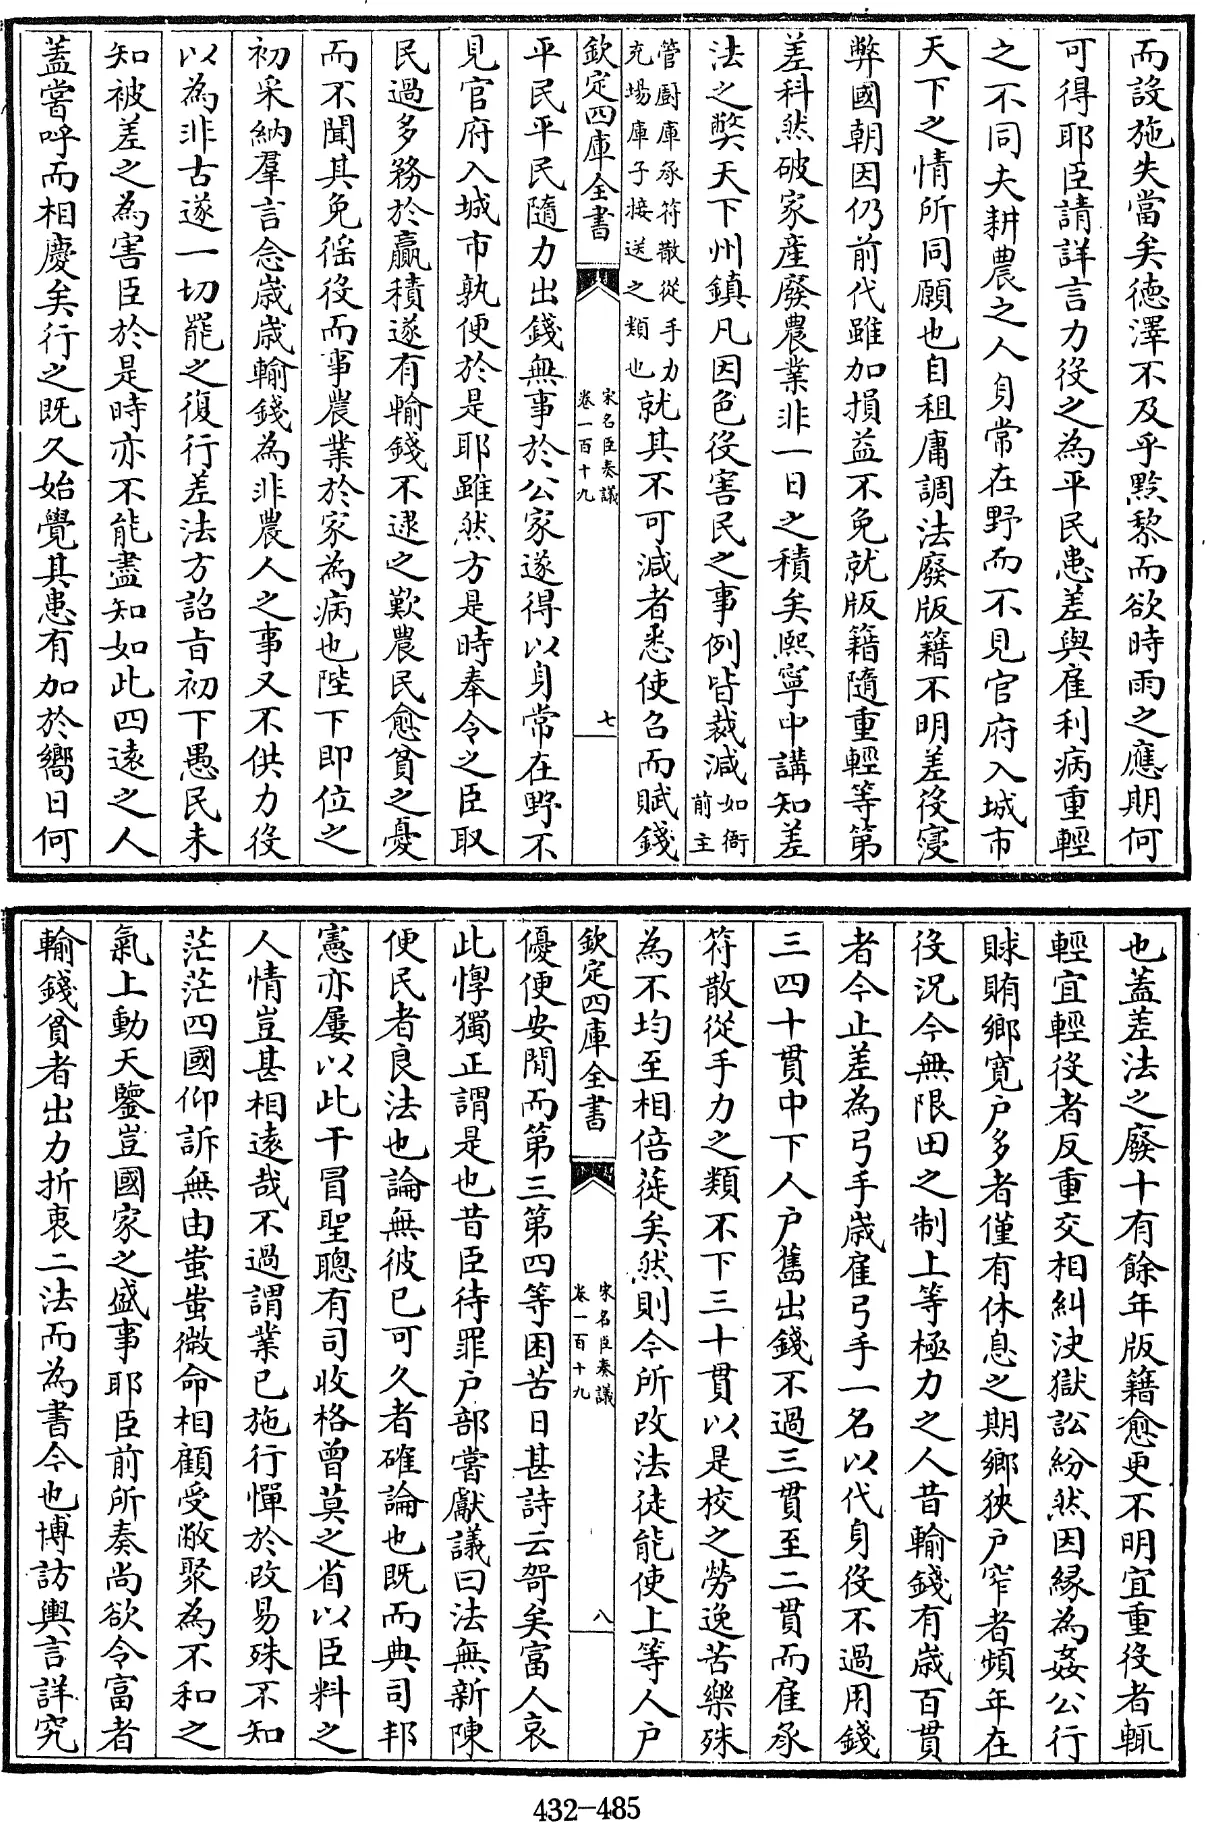 而設施失當矣德澤不及乎黔黎而欲時雨之應期何
可得耶臣請詳言力役之為平民患差與雇利病重輕
之不同夫耕農之人身常在野而不見官府入城市
天下之情所同願也自租庸調法廢版籍不明差役寖
弊國朝因仍前代雖加損益不免就版籍隨重輕等第
差科然破家産廢農業非一日之積矣熙寧中講知差
法之獘天下州鎮凡因色役害民之事例皆裁減如衙
前主
管厨庫承符散從手力
充場庫子接送之類也就其不可減者悉使召而賦錢
欽定四庫全書
宋名臣奏議
卷一百十九
七
平民平民隨力出錢無事於公家遂得以身常在野不
見官府入城市孰便於是耶雖然方是時奉令之臣取
民過多務於贏積遂有輸錢不逮之歎農民愈貧之憂
而不聞其免徭役而事農業於家為病也陛下即位之
初采納羣言念歲歲輸錢為非農人之事又不供力役
以為非古遂一切罷之復行差法方詔旨初下愚民未
知被差之為害臣於是時亦不能盡知如此四遠之人
蓋嘗呼而相慶矣行之既久始覺其患有加於嚮日何
也蓋差法之廢十有餘年版籍愈更不明宜重役者輒
輕宜輕役者反重交相糾決獄訟紛然因縁為姦公行
賕賄鄉寛户多者僅有休息之期鄉狹户窄者頻年在
役況今無限田之制上等極力之人昔輸錢有歲百貫
者今止差為弓手歲雇弓手一名以代身役不過用錢
三四十貫中下人户舊出錢不過三貫至二貫而雇承
符散從手力之類不下三十貫以是校之勞逸苦樂殊
為不均至相倍蓰矣然則今所改法徒能使上等人户
欽定四庫全書
宋名臣奏議
卷一百十九
八
優便安閒而第三第四等困苦日甚詩云哿矣富人哀
此惸獨正謂是也昔臣待罪户部嘗獻議曰法無新陳
便民者良法也論無彼已可久者確論也既而典司邦
憲亦屢以此干冒聖聰有司收格曾莫之省以臣料之
人情豈甚相遠哉不過謂業已施行憚於改易殊不知
茫茫四國仰訴無由蚩蚩微命相顧受敝聚為不和之
氣上動天鑒豈國家之盛事耶臣前所奏尚欲令富者
輸錢貧者出力折衷二法而為書今也博訪輿言詳究
432-485